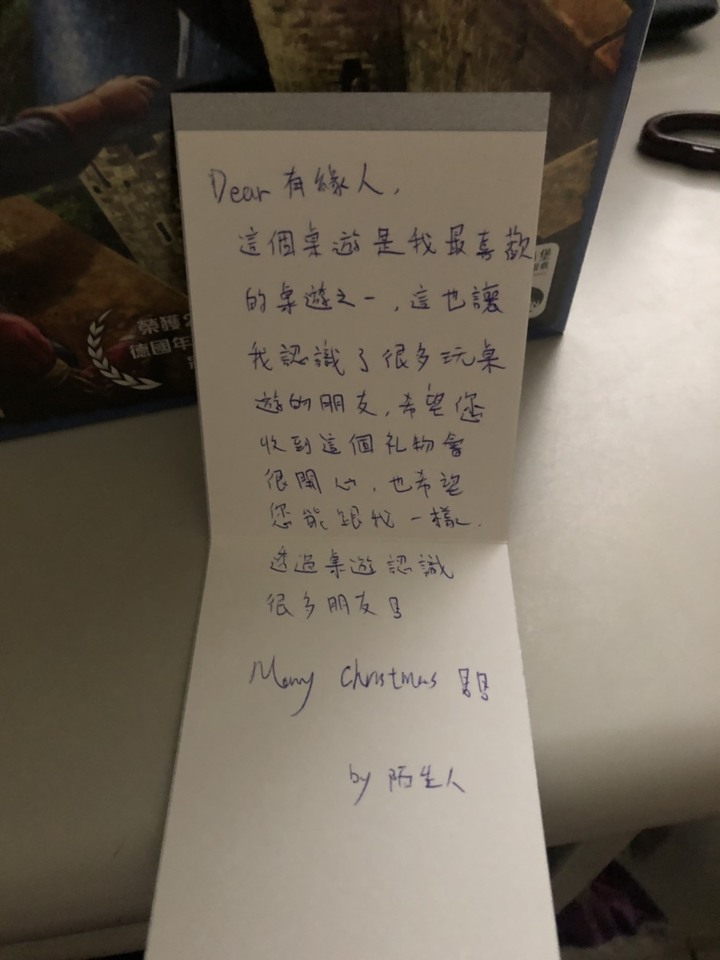 Dear 有緣人,
這個桌遊是我最喜歡
的桌遊之一,這也讓
我認識了很多玩桌
遊的朋友,希望您
收到這個礼物會
很開心,也希望
您能跟我一樣,
透過桌遊認識
很多朋友!
Merry Christmas !!
by 陌生人
榮獲2
德國年
堡